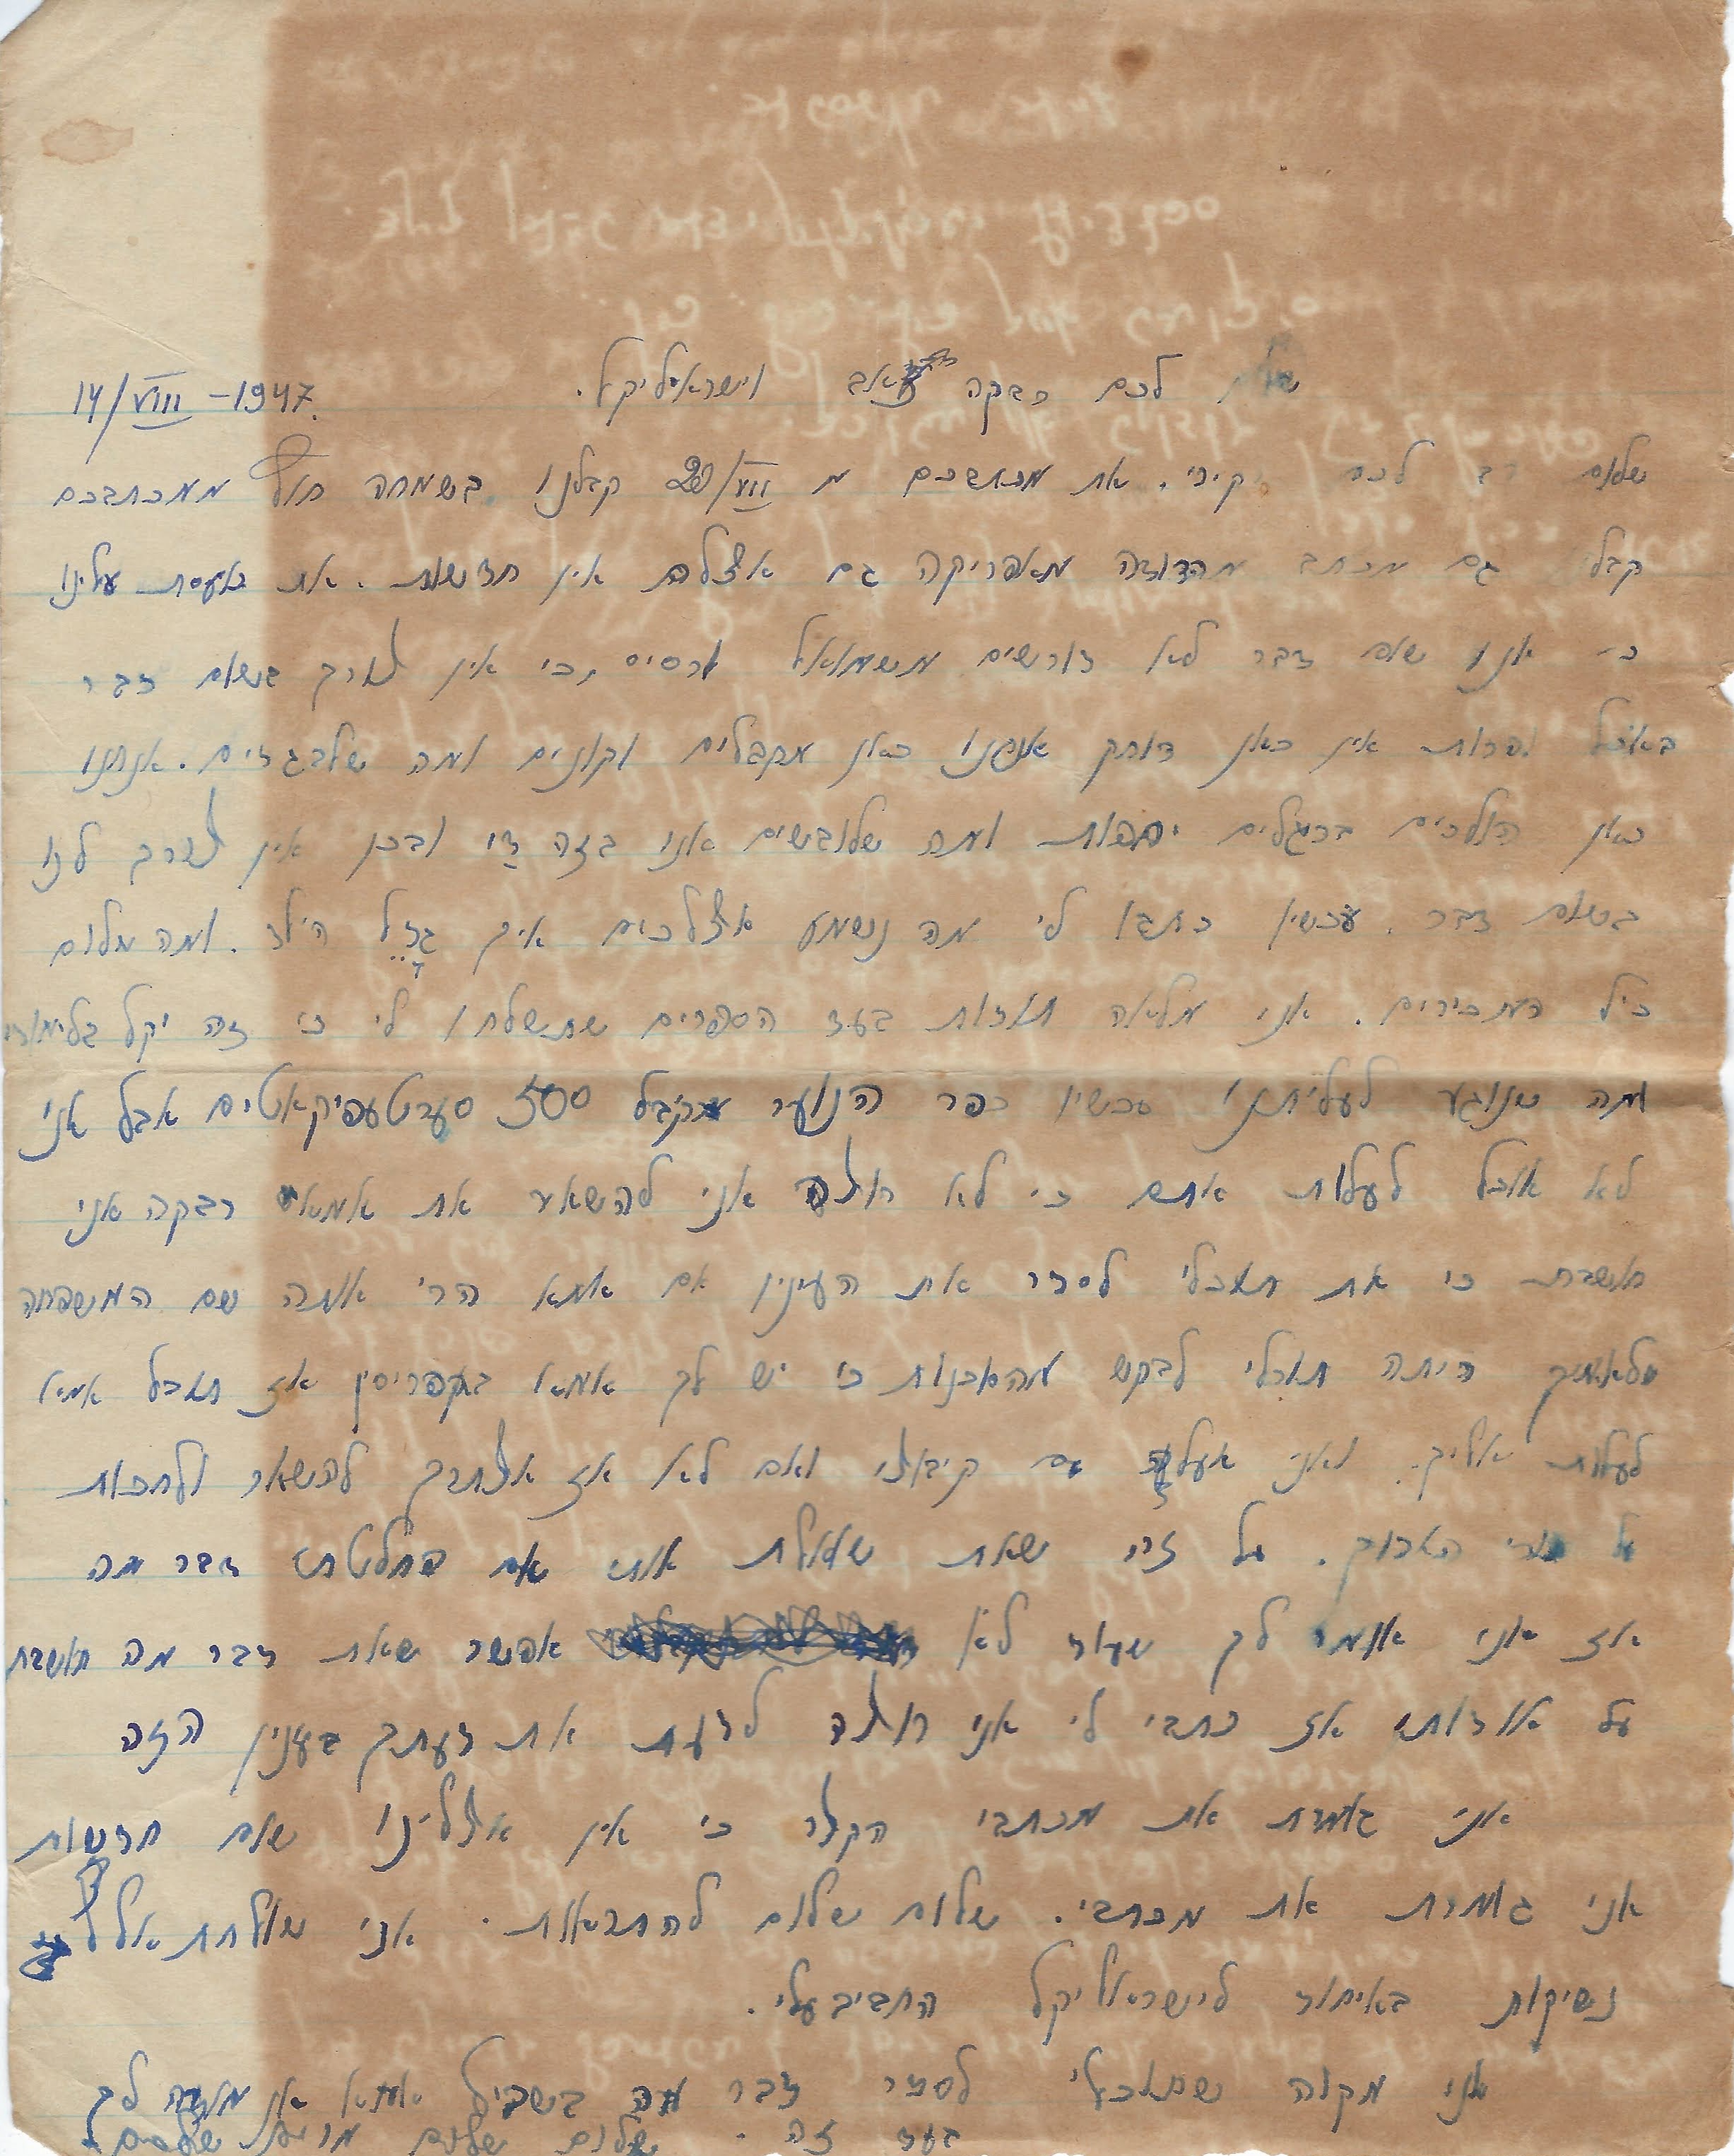 שלום לכם רבקה זאב וישראליקל. 14/VIII-1947.
שלום רב לכם יקירי. את מכתבכם מ 20/VII קבלנו בשמחה חוץ ממכתבכם
קבלתי גם מכתב מהדודה מאפריקה גם אצלם אין חדשות. את כועסת עלינו
כי אנו שום דבר לא דורשים משמואל וסיס, כי אין צורך בשום דבר
באוכל ופרות אין כאן דוחק אנחנו כאן מקבלים וקונים ומה שלבגדים. אנחנו
כאן הולכים ברגלים יחפות ומה שלובשים אנו בזה די ובכן אין צורך לנו
בשום דבר. עכשיו כתבו לי מה נשמע אצלכם איך גדל הילד. ומה שלום
כל המכירים. אני מלאה תודות בעד הספרים שתשלחו לי כי זה יקל בלימודי
ומה שנוגע לעליתנו עכשיו כפר הנוער מקבל 500 סערטעפיקאטים אבל אני
לא אוכל לעלות אתם כי לא רוצה אני להשאיר את אמא רבקה אני
חושבת כי את תוכלי לסדר את הענין אם אמא הרי אותה שם המשפחה
שלאמך היתה תוכלי לבקש מהסוכנות כי יש לך אמא בקפריסין אז תוכל אמא
לעלות אליך. ואני אעלה עם קיבוצי ואם לא אז אצטרך להשאר ולחכות
על תורי הארוך. על זה שאת שואלת אותי אם החלטתי דבר מה
אז אני אומר לך שעוד לא אפשר שאת דבר מה חושבת
על אודותי אז כתבי לי אני רוצה לדעת את דעתך בענין הזה
אני גומרת את מכתבי הקצר כי אין אצלינו שום חדשות
אני גומרת את מכתבי. שלום שלום להתראות. אני שולחת אלף
נשיקות באיחוד לישראליקל החביב עלי.
אני מקוה שתוכלי לסדר דבר מה בשביל אמא אני מודה לך
בעד זה. שלום שלום